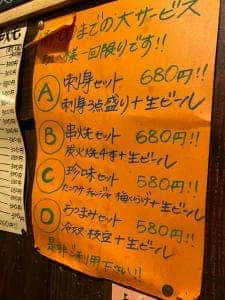 までの大サービス
様一回限りです!!
A 刺身セット 680円!!
刺身3点盛り+生ビール
B 串焼セット 680円!!
炭火焼4本+生ビール
C 珍味セット 580円!!
梅くらげ+生ビール
D おつまみセット 580円!!
冷奴 枝豆+生ビール
是非ご利用下さい!!